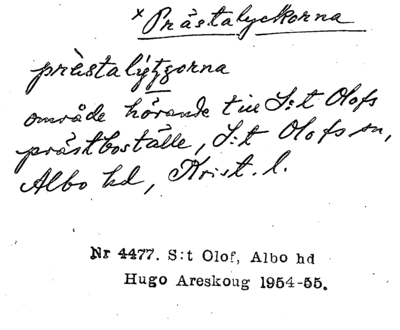 × Prästalyckorna
prästalýzzorna
område hörande till S:t Olofs
prästboställe, S:t Olofs sn,
Albo hd, Krist. l.
Nr 4477. S:t Olof, Albo hd
Hugo Areskoug 1954-55.